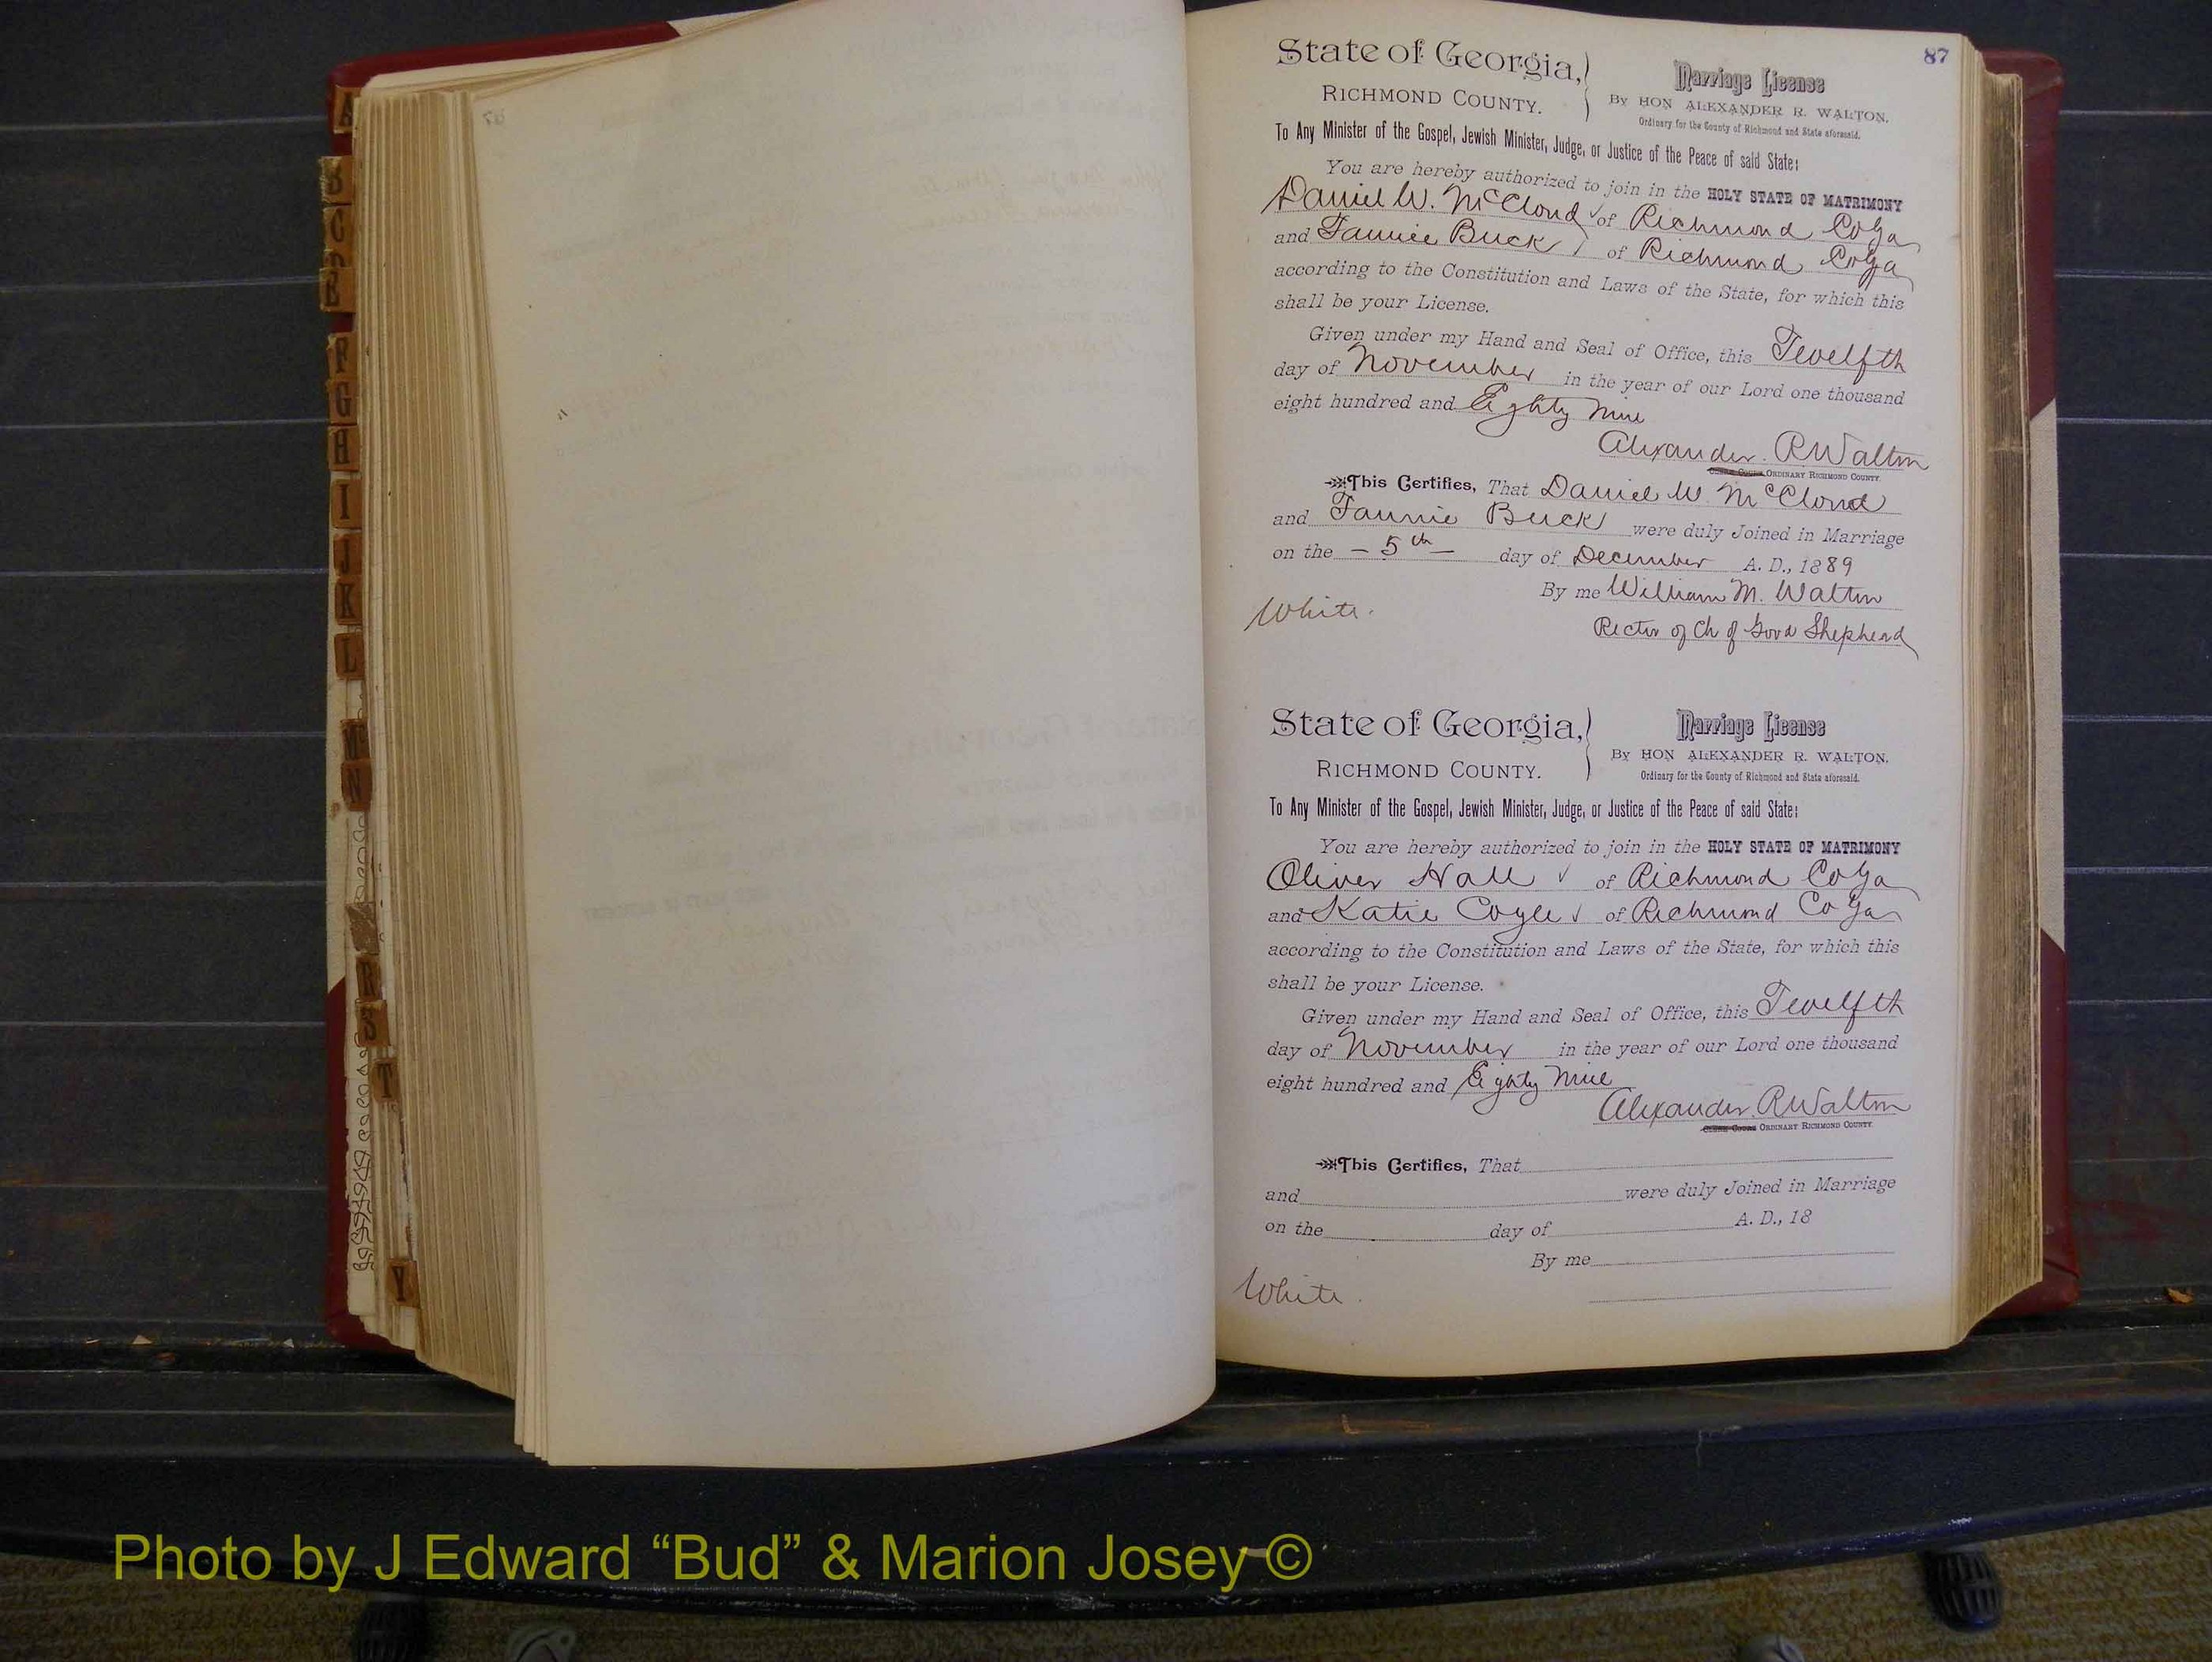 A
B
C
D
E
F
G
H
I
J
K
L
Mc
N
R
S
T
Y
87
State of Georgia,
RICHMOND COUNTY.
Marriage License
By HON ALEXANDER R. WALTON,
Ordinary for the County of Richmond and State aforesaid.
To Any Minister of the Gospel, Jewish Minister, Judge, or Justice of the Peace of said State:
You are hereby authorized to join in the HOLY STATE OF MATRIMONY
Daniel W. McCloud of Richmond Co Ga
and Fannie Buck of Richmond Co Ga
according to the Constitution and Laws of the State, for which this
shall be your License.
Given under my Hand and Seal of Office, this Twelfth
day of November in the year of our Lord one thousand
eight hundred and Eighty Nine
Alexander R Walton
ORDINARY RICHMOND COUNTY.
This Certifies, That Daniel W. McCloud
and Fannie Buck were duly Joined in Marriage
on the – 5th – day of December A. D., 1889
By me William M. Walton
Rector of Ch of Good Shepherd
White.
State of Georgia,
RICHMOND COUNTY.
Marriage License
By HON ALEXANDER R. WALTON,
Ordinary for the County of Richmond and State aforesaid.
To Any Minister of the Gospel, Jewish Minister, Judge, or Justice of the Peace of said State:
You are hereby authorized to join in the HOLY STATE OF MATRIMONY
Oliver Hall of Richmond Co Ga
and Katie Coyle of Richmond Co Ga
according to the Constitution and Laws of the State, for which this
shall be your License.
Given under my Hand and Seal of Office, this Twelfth
day of November in the year of our Lord one thousand
eight hundred and Eighty Nine
Alexander R Walton
ORDINARY RICHMOND COUNTY.
This Certifies, That
and were duly Joined in Marriage
on the day of A. D., 18
By me
White.
Photo by J Edward “Bud” & Marion Josey ©